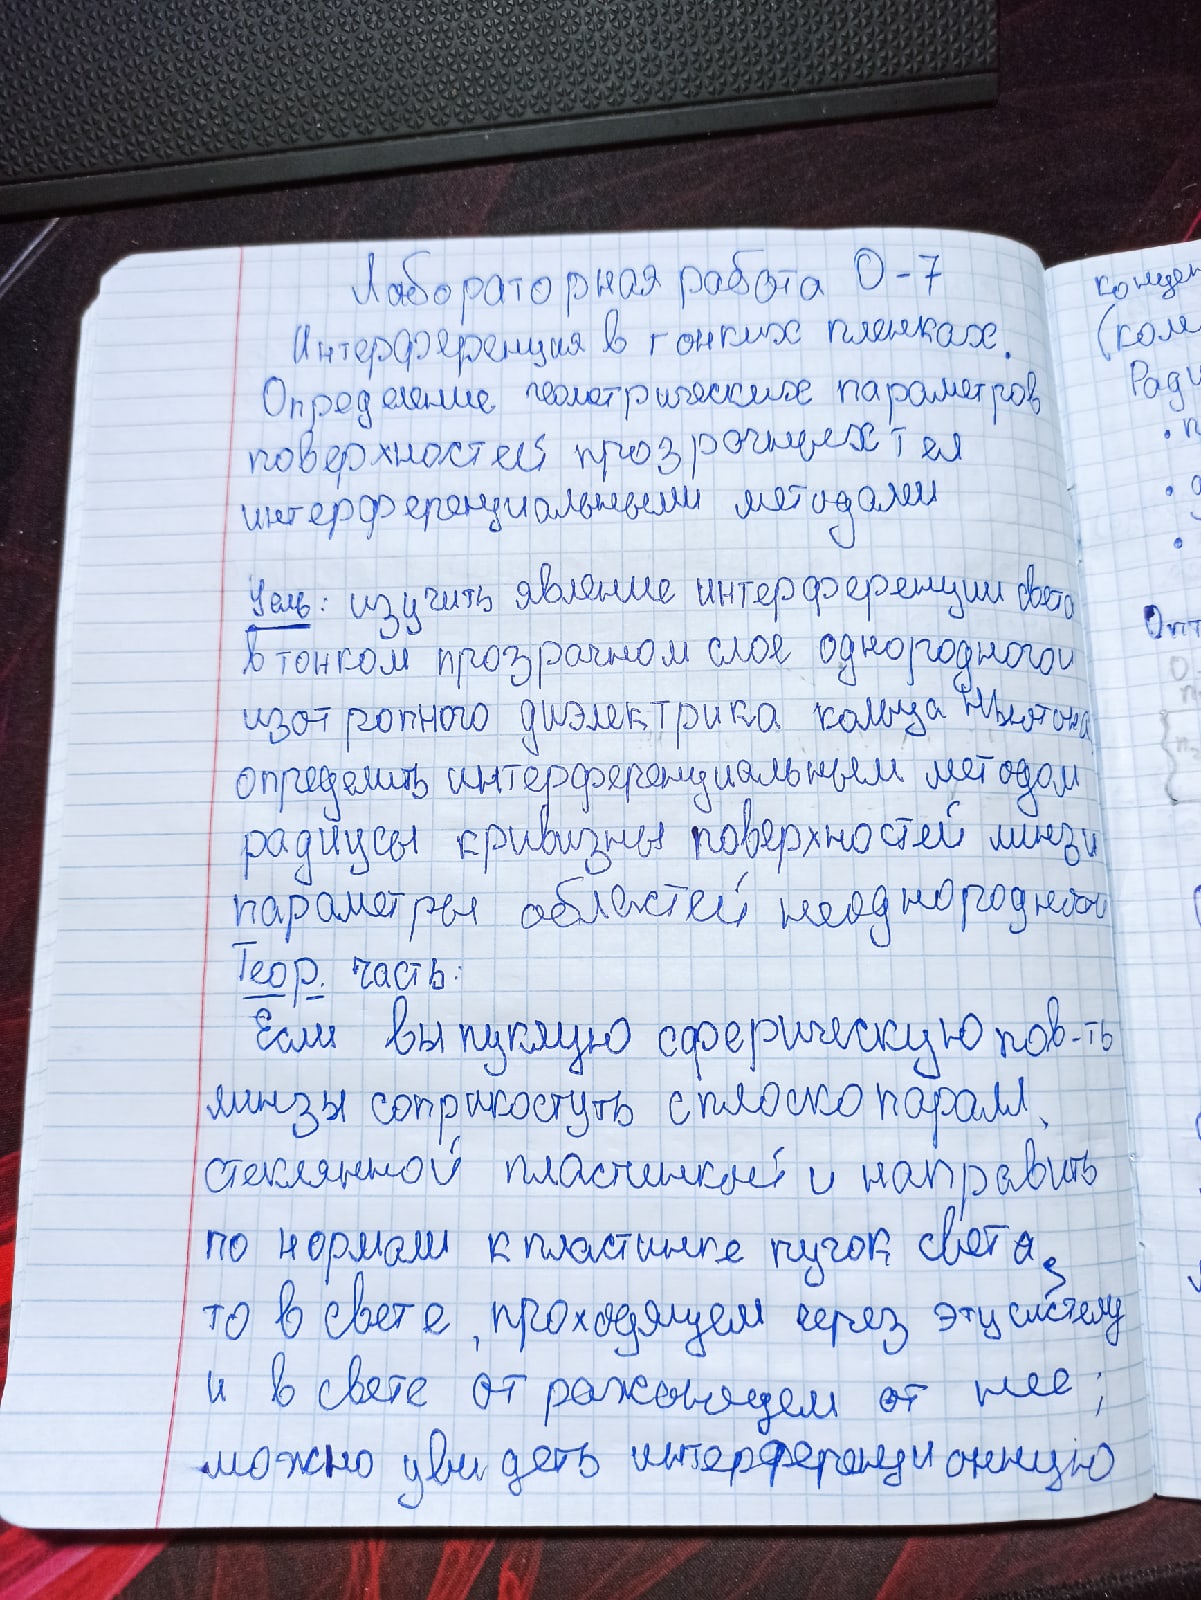 Лабораторная работа О-7
Интерференция в тонких пленках.
Определение геометрических параметров
поверхностей прозрачных тел
интерференциальными методами
Цель: изучить явление интерференции света
в тонком прозрачном слое однородного
изотропного диэлектрика кольца Ньютона,
определить интерференциальным методом
радиусы кривизны поверхностей линз и
параметры областей неоднородности
Теор. часть:
Если выпуклую сферическую пов-ть
линзы соприкоснуть с плоскопаралл.
стеклянной пластинкой и направить
по нормали к пластинке пучок света,
то в свете, проходящем через эту систему
и в свете отражающем от нее;
можно увидеть интерференционную
(коль
Ради